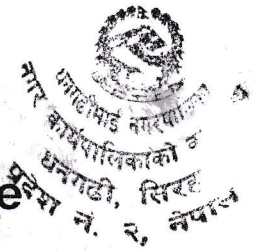 धनगढीमाई नगरपालिका
नगर कार्यपालिकाको
धनगढी, सिरहा
प्रदेश नं. २, नेपाल
e